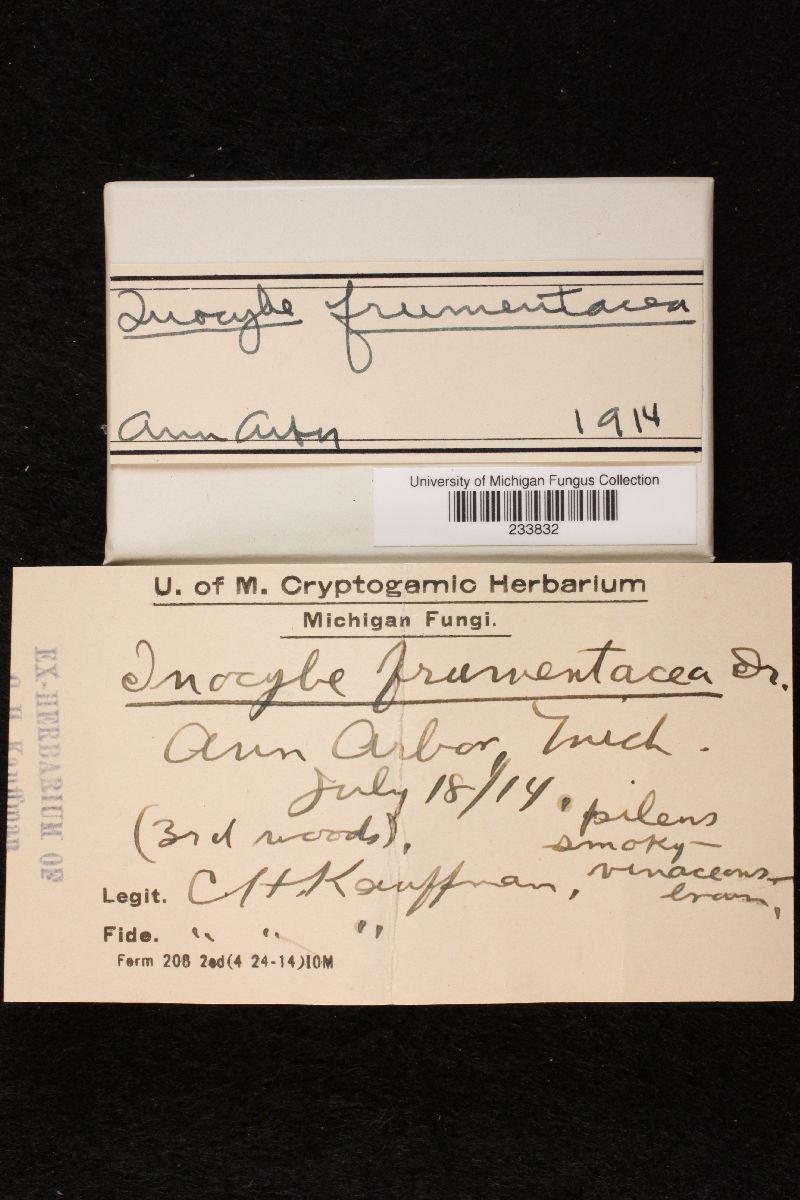 Inocybe frumentacea
Ann Arbor 1914
University of Michigan Fungus Collection
233832
U. of M. Cryptogamic Herbarium
Michigan Fungi.
Inocybe frumentacea Fr.
Ann Arbor, Mich.
July 18/14.
(3rd woods).
pileus
smoky-
vinaceous-
brown,
Legit. C H. Kauffman,
Fide. " " "
Form 208 2ed(4 24-14)10M
EX-HERBARIUM OF
C. H. Kauffman